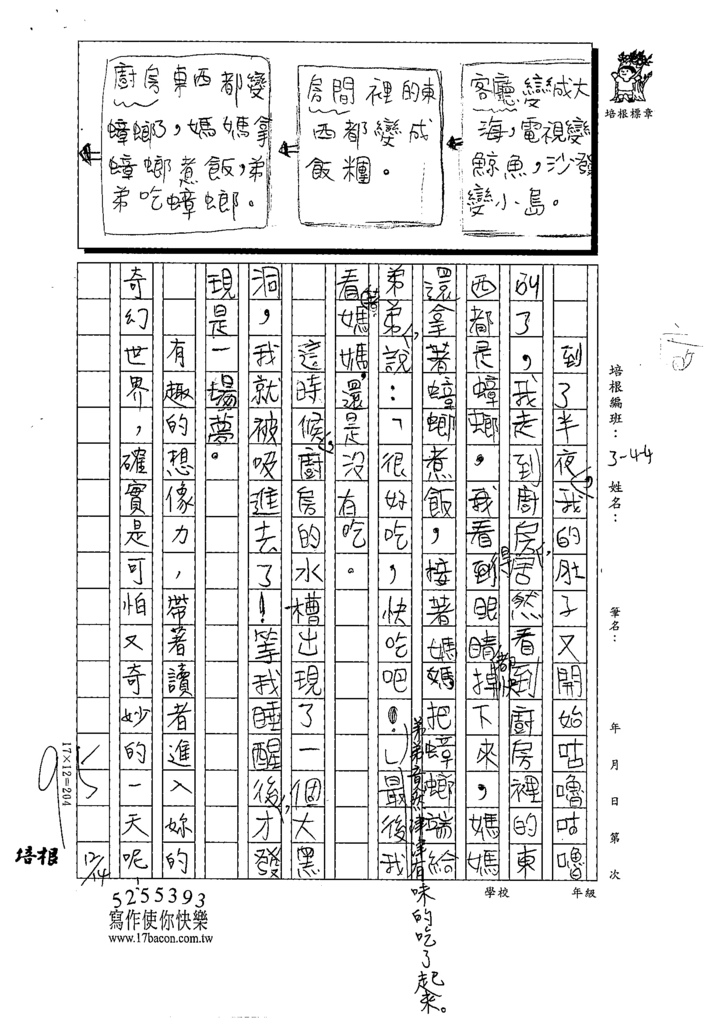 客廳變成大
海，電視變
鯨魚，沙發
變小島。
房間裡的東
西都變成
飯糰。
廚房東西都變
蟑螂了，媽媽拿
蟑螂煮飯，弟
弟吃蟑螂。
培根標章
培根編班：3-44 姓名： 筆名： 年 月 日 第 次
學校 年級
到了半夜，我的肚子又開始咕嚕咕嚕
叫了，我走到廚房，居然看到廚房裡的東
西都是蟑螂。我看得眼睛都快掉下來，媽媽
還拿著蟑螂煮飯，接著媽媽把蟑螂端給
弟弟，說：「很好吃，快吃吧！」最後我
弟弟竟然津津有味的吃了起來。
看著媽媽，還是沒有吃。
這時候，廚房的水槽出現了一個大黑
洞，我就被吸進去了！等我睡醒後，才發
現是一場夢。
有趣的想像力，帶著讀者進入妳的
奇幻世界，確實是可怕又奇妙的一天呢！
95
12/14
17×12=204
培根
5255393
寫作使你快樂
www.17bacon.com.tw